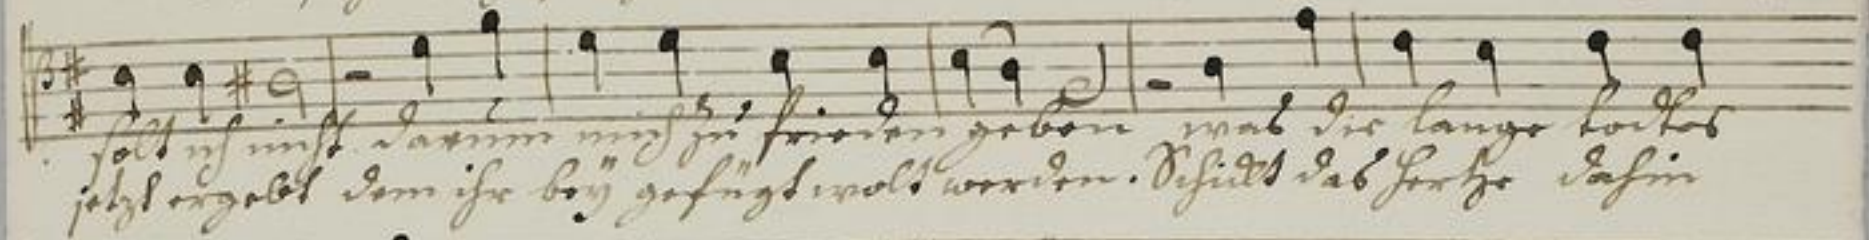 solt ich nicht darum mich zu frieden geben was die lange todtes
jetzt ergebt dem ihr beÿ gefügt wolt werden. Schickt das Hertze dahin